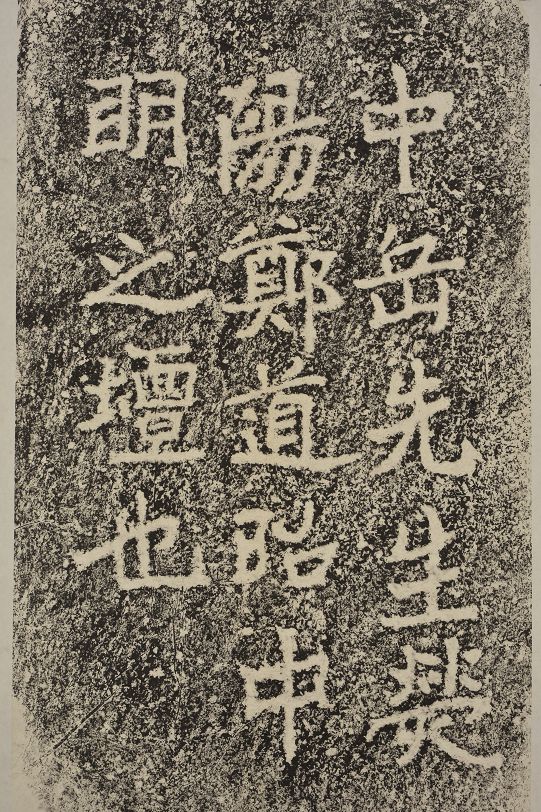 中岳先生熒
陽鄭道昭中
眀之壇也